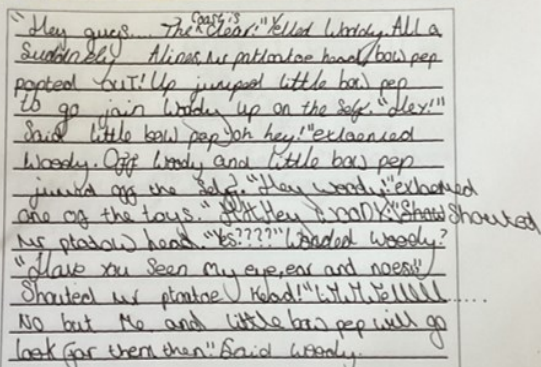 "Hey guys.... The coast is clear!" Yelled Woody. All a
Suddinely Aliens, Mr patatoe head, bow pep
popted out! Up jumped little bow pep
to go join Woody up on the Self. "Hey!"
Said little bow pep "oh hey!" exlaemed
Woody. Off Woody and little bow pep
jumed off the Self. "Hey Woody!" exlaemed
one of the toys. " Hey WOODY!" Shouted
Mr ptatow head. "Yes????" Wonded Woody?
"Have you Seen My eye, ear and noes"
Shouted Mr ptatoe Head!"
No but Me and little bow pep will go
look for them then." Said Woody.